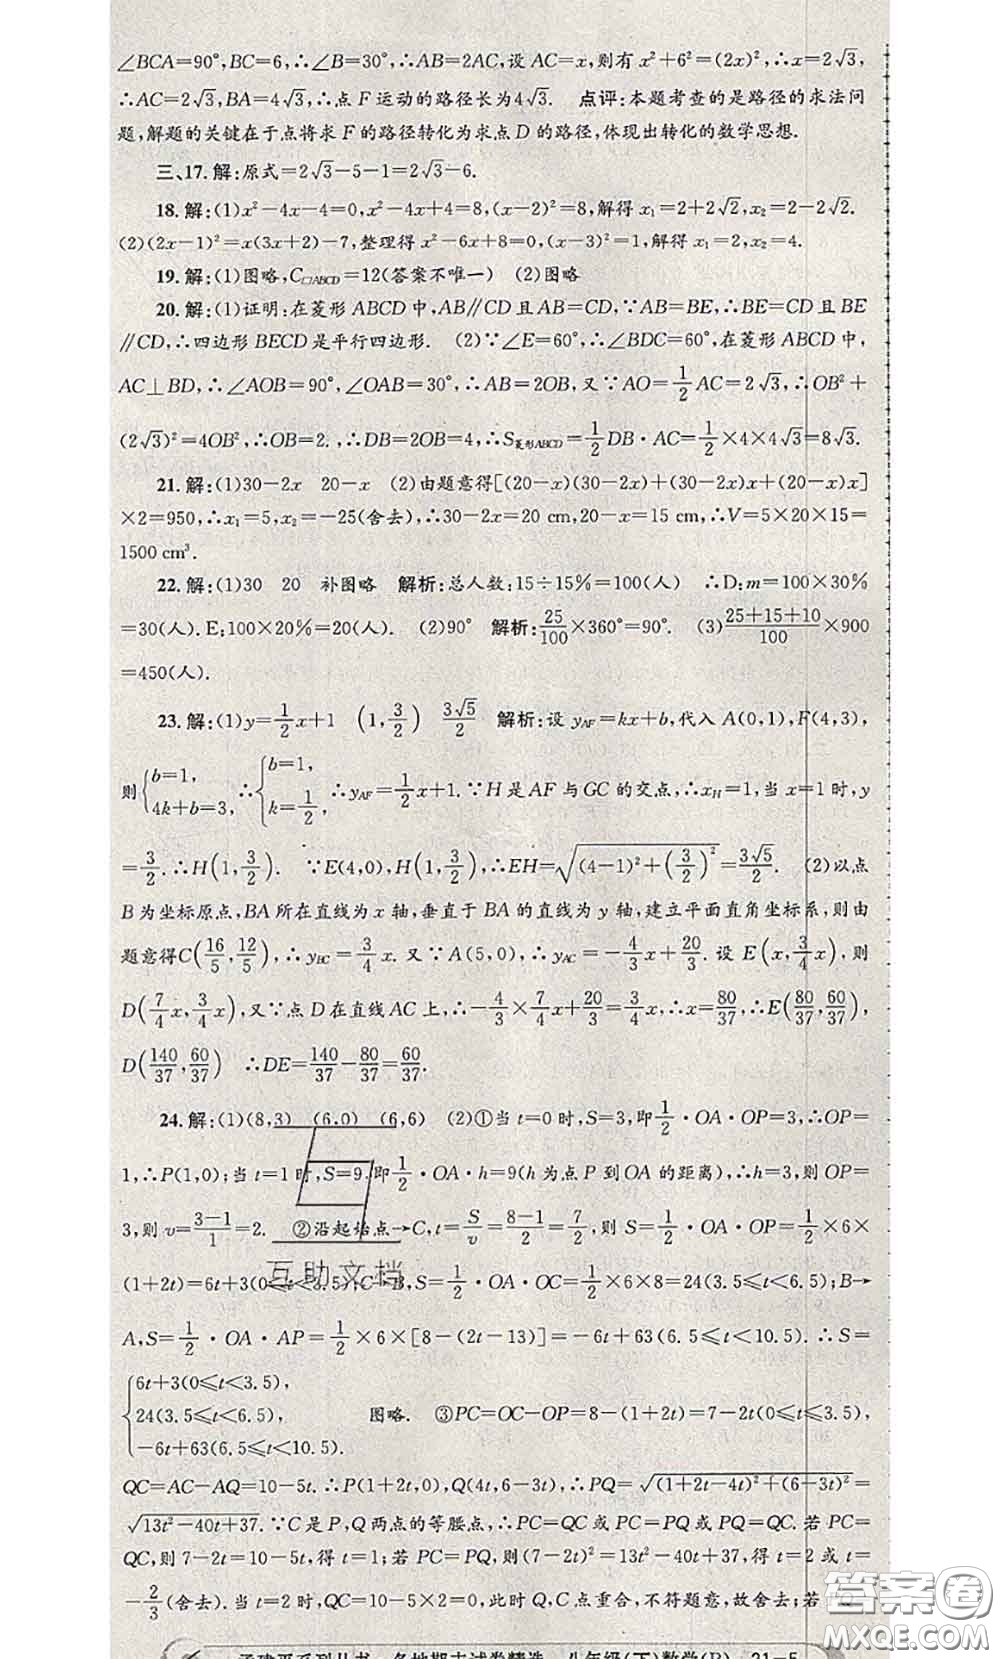 ∠BCA=90°,BC=6,∴∠B=30°,∴AB=2AC,设AC=x,则有x²+6²=(2x)²,∴x=2√3,
∴AC=2√3,BA=4√3,∴点F运动的路径长为4√3. 点评:本题考查的是路径的求法问
题,解题的关键在于点将求F的路径转化为求点D的路径,体现出转化的数学思想.
三、17.解:原式=2√3-5-1=2√3-6.
18.解:(1)x²-4x-4=0,x²-4x+4=8,(x-2)²=8,解得x₁=2+2√2,x₂=2-2√2.
(2)(2x-1)²=x(3x+2)-7,整理得x²-6x+8=0,(x-3)²=1,解得x₁=2,x₂=4.
19.解:(1)图略,C▱ABCD=12(答案不唯一) (2)图略
20.解:(1)证明:在菱形ABCD中,AB∥CD且AB=CD,∵AB=BE,∴BE=CD且BE
∥CD,∴四边形BECD是平行四边形. (2)∵∠E=60°,∴∠BDC=60°,在菱形ABCD中,
AC⊥BD,∴∠AOB=90°,∠OAB=30°,∴AB=2OB,又∵AO=1/2AC=2√3,∴OB²+
(2√3)²=4OB²,∴OB=2.,∴DB=2OB=4,∴S菱形ABCD=1/2DB·AC=1/2×4×4√3=8√3.
21.解:(1)30-2x 20-x (2)由题意得[(20-x)(30-2x)+(30-2x)x+(20-x)x]
×2=950,∴x₁=5,x₂=-25(舍去),∴30-2x=20 cm,20-x=15 cm,∴V=5×20×15=
1500 cm³.
22.解:(1)30 20 补图略 解析:总人数:15÷15%=100(人) ∴D:m=100×30%
=30(人).E:100×20%=20(人). (2)90° 解析:25/100×360°=90°. (3)(25+15+10)/100×900
=450(人).
23.解:(1)y=1/2x+1 (1,3/2) 3√5/2 解析:设yAF=kx+b,代入A(0,1),F(4,3),
则{b=1, 4k+b=3, ∴{b=1, k=1/2, ∴yAF=1/2x+1.∵H是AF与GC的交点,∴xH=1,当x=1时,y
=3/2.∴H(1,3/2). ∵E(4,0),H(1,3/2),∴EH=√((4-1)²+(3/2)²)=3√5/2. (2)以点
B为坐标原点,BA所在直线为x轴,垂直于BA的直线为y轴,建立平面直角坐标系,则由
题意得C(16/5,12/5),∴yBC=3/4x.又∵A(5,0),∴yAC=-4/3x+20/3.设E(x,3/4x),则
D(7/4x,3/4x),又∵点D在直线AC上,∴-4/3×7/4x+20/3=3/4x,∴x=80/37,∴E(80/37,60/37),
D(140/37,60/37) ∴DE=140/37-80/37=60/37.
24.解:(1)(8,3) (6,0) (6,6) (2)①当t=0时,S=3,即1/2·OA·OP=3,∴OP=
1,∴P(1,0);当t=1时,S=9,即1/2·OA·h=9(h为点P到OA的距离),∴h=3,则OP=
3,则v=(3-1)/1=2. ②沿起始点→C,t=S/v=(8-1)/2=7/2,则S=1/2·OA·OP=1/2×6×
(1+2t)=6t+3(0≤t<3.5);C→B,S=1/2·OA·OC=1/2×6×8=24(3.5≤t<6.5);B→
A,S=1/2·OA·AP=1/2×6×[8-(2t-13)]=-6t+63(6.5≤t<10.5).∴S=
{6t+3(0≤t<3.5),
24(3.5≤t<6.5), 图略. ③PC=OC-OP=8-(1+2t)=7-2t(0≤t≤3.5),
-6t+63(6.5≤t<10.5).
QC=AC-AQ=10-5t.∴P(1+2t,0),Q(4t,6-3t),∴PQ=√((1+2t-4t)²+(6-3t)²)=
√(13t²-40t+37).∵C是P,Q两点的等腰点,∴PC=QC或PC=PQ或PQ=QC.若PC=
QC,则7-2t=10-5t,得t=1;若PC=PQ,则(7-2t)²=13t²-40t+37,得t=2或t=
-2/3(舍去).当t=2时,QC=10-5×2=0,此时Q,C点重合,不符题意,故舍去;若
互助文档
答案卷
孟建平系列丛书·各地期末试卷精选 八年级(下)数学(R) 21-5